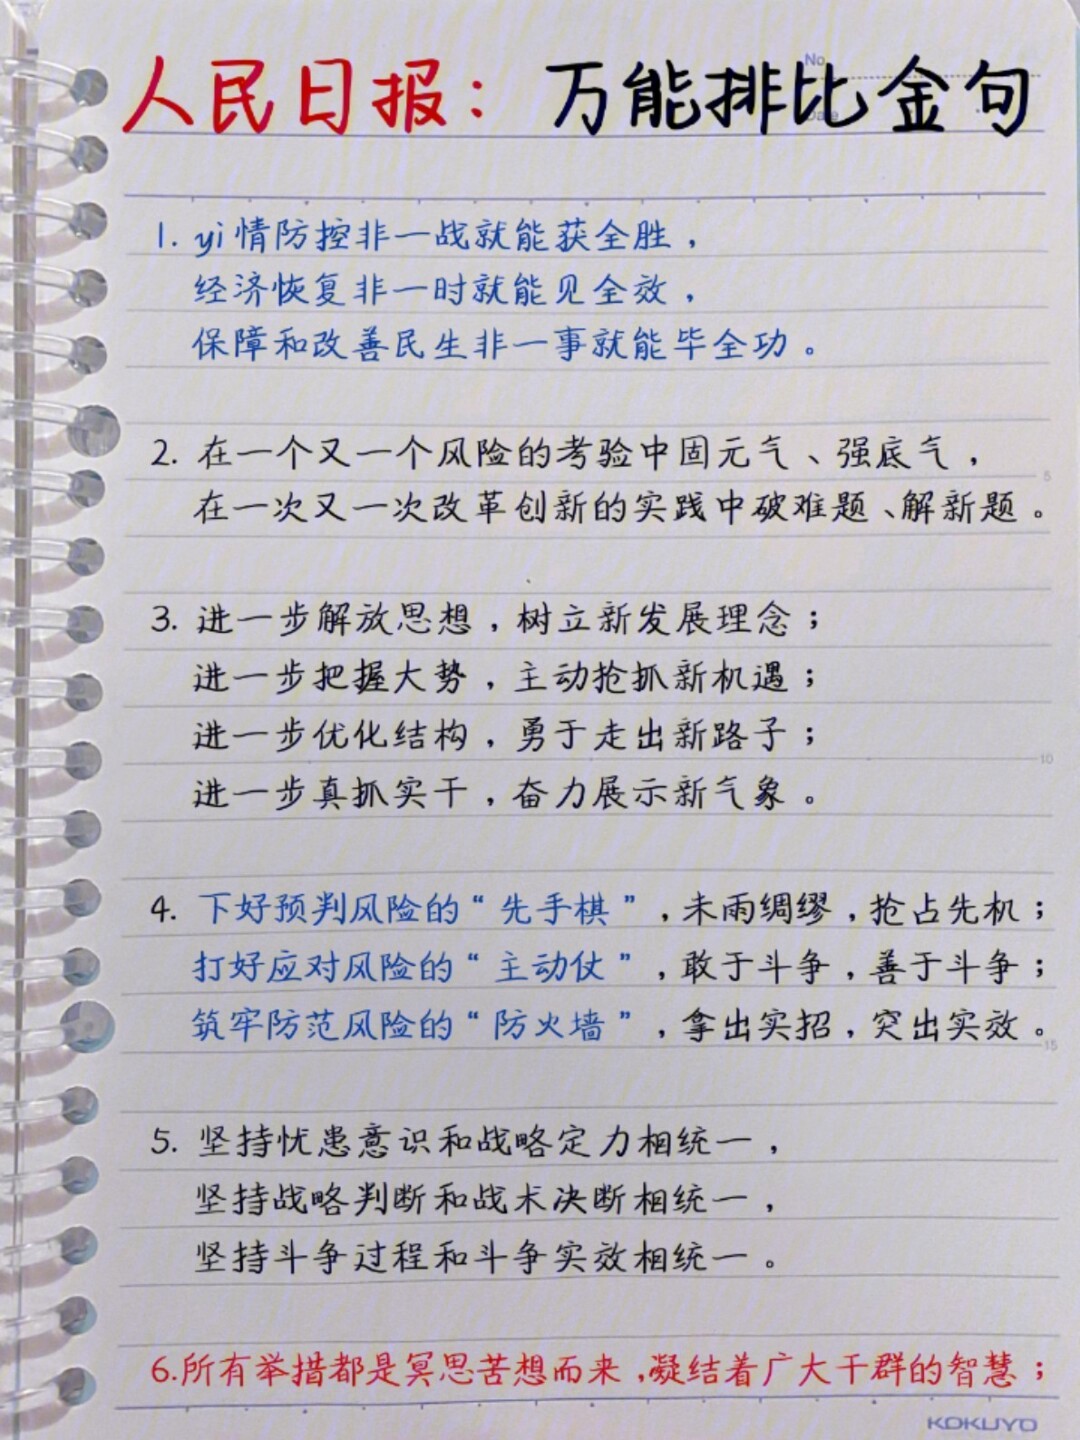 No.
Date
人民日报：万能排比金句
1. yi情防控非一战就能获全胜，
经济恢复非一时就能见全效，
保障和改善民生非一事就能毕全功。
2. 在一个又一个风险的考验中固元气、强底气，
5
在一次又一次改革创新的实践中破难题、解新题。
3. 进一步解放思想，树立新发展理念；
进一步把握大势，主动抢抓新机遇；
进一步优化结构，勇于走出新路子；
10
进一步真抓实干，奋力展示新气象。
4. 下好预判风险的“先手棋”，未雨绸缪，抢占先机；
打好应对风险的“主动仗”，敢于斗争，善于斗争；
筑牢防范风险的“防火墙”，拿出实招，突出实效。
15
5. 坚持忧患意识和战略定力相统一，
坚持战略判断和战术决断相统一，
坚持斗争过程和斗争实效相统一。
6.所有举措都是冥思苦想而来，凝结着广大干群的智慧；
KOKUYO